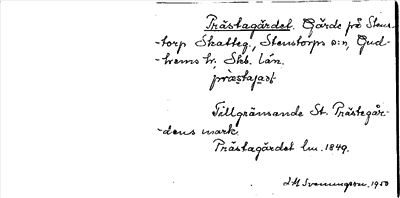 Prästagärdet. Gärde på Stens-
-torp Skatteg., Stenstorps s:n, Gud-
-hems hd, Skb. län.
præstajaṣt.
Tillgränsande St. Prästegår-
-dens mark.
Prästagärdet lm. 1849.
J M Svenungson. 1950